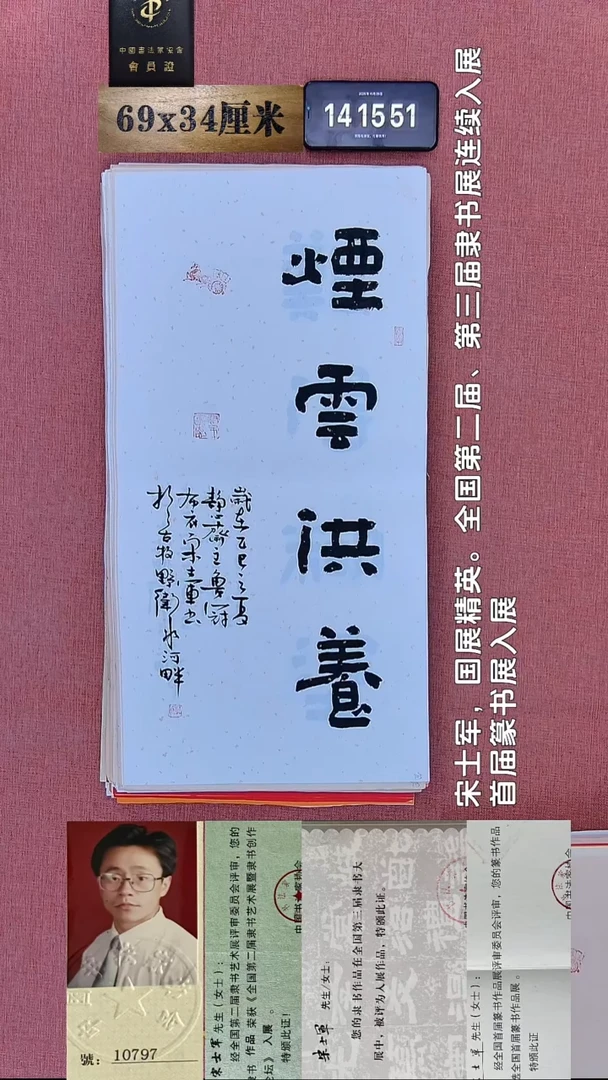 中國書法家協會
會員證
69x34厘米
14 15 51
煙雲供養
歲在乙巳之夏
静齋主魯冠
布衣宋士軍書
於古牧野衛水河畔
宋士军，国展精英。全国第二届、第三届隶书展连续入展
首届篆书展入展
号: 10797
宋士军 先生（女士）：
经全国第二届隶书艺术展评审委员会评审，您的
隶书 作品 荣获《全国第二届隶书艺术展暨隶书创作
论坛》 入展 。
特颁此证！
宋士军 先生/女士：
您的隶书作品在全国第三届隶书大
展中，被评为入展作品，特颁此证。
士军 先生（女士）：
经全国首届篆书作品展评审委员会评审，您的篆书作品
选全国首届篆书作品展 。
特颁此证